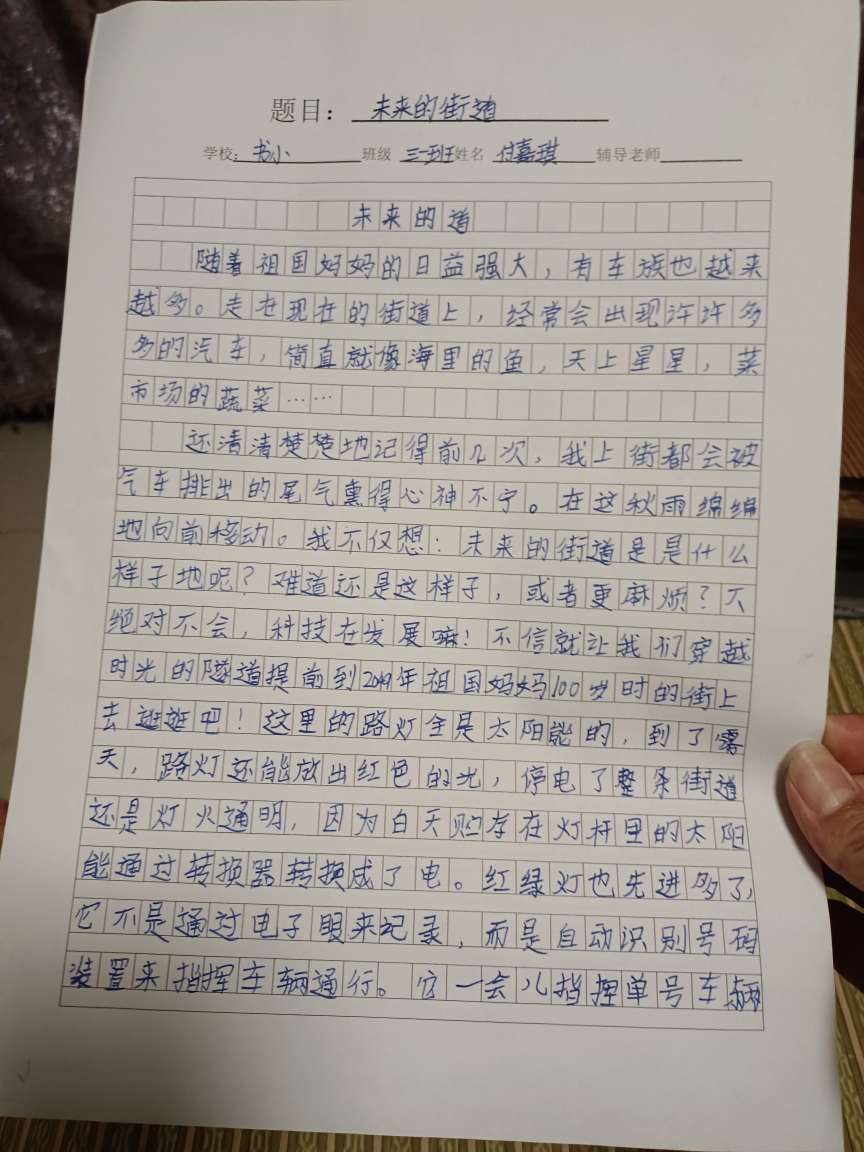 题目：未来的街道
学校：书小 班级 三一班 姓名 付嘉琪 辅导老师
未来的道
随着祖国妈妈的日益强大，有车族也越来
越多。走在现在的街道上，经常会出现许许多
多的汽车，简直就像海里的鱼，天上星星，菜
市场的蔬菜……
还清清楚楚地记得前几次，我上街都会被
气车排出的尾气熏得心神不宁。在这秋雨绵绵
地向前移动。我不仅想：未来的街道是是什么
样子地呢？难道还是这样子，或者更麻烦？不
绝对不会，科技在发展嘛！不信就让我们穿越
时光的隧道提前到2049年祖国妈妈100岁时的街上
去逛逛吧！这里的路灯全是太阳能的，到了雾
天，路灯还能放出红色的光，停电了整条街道
还是灯火通明，因为白天贮存在灯杆里的太阳
能通过转换器转换成了电。红绿灯也先进多了，
它不是通过电子眼来记录，而是自动识别号码
装置来指挥车辆通行。它一会儿指挥单号车辆